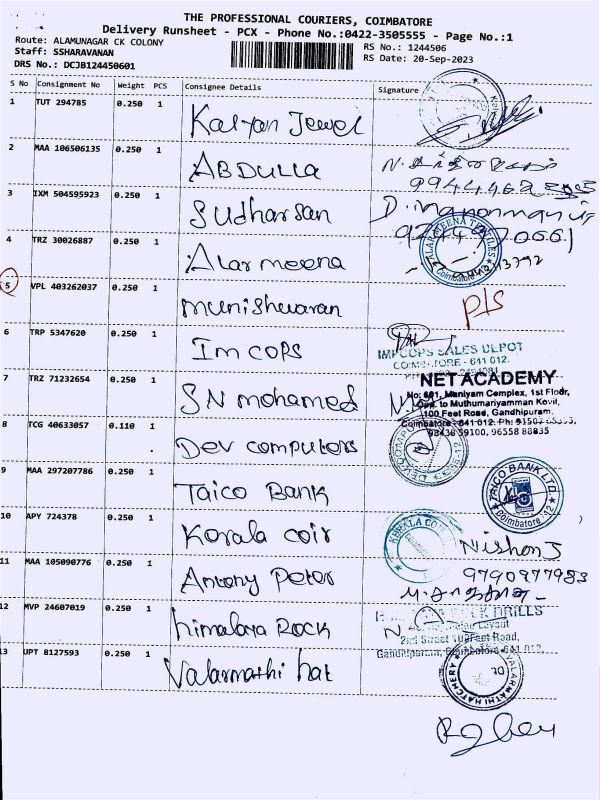 THE PROFESSIONAL COURIERS, COIMBATORE
Delivery Runsheet - PCX - Phone No.:0422-3505555 - Page No.:1
Route: ALAMUNAGAR CK COLONY
RS No.: 1244506
Staff: SSHARAVANAN
RS Date: 20-Sep-2023
DRS No.: DCJB124450601
S No Consignment No Weight PCS Consignee Details Signature
1 TUT 294785 0.250 1 Kalyan Jewel
2 MAA 106506135 0.250 1 ABDULLA
3 IXM 504595923 0.250 1 Sudharsan
4 TRZ 30026887 0.250 1 Alarmeena
ALAR MEENA TEXTILES
Coimbatore
5 VPL 403262037 0.250 1 munishwaran
P/S
6 TRP 5347620 0.250 1 Imcops
IMPCOPS SALES DEPOT
COIMBATORE - 641 012.
7 TRZ 71232654 0.250 1 SN mohamed
NET ACADEMY
No: 601, Maniyam Complex, 1st Floor,
Opp. to Muthumariyamman Kovil,
100 Feet Road, Gandhipuram,
Coimbatore - 641 012. Ph:
98438 59100, 96558 88835
8 TCG 40633057 0.110 1 Dev computers
9 MAA 297207786 0.250 1 Taico Bank
TAICO BANK LTD
Coimbatore - 12
10 APY 724378 0.250 1 Kerala coir
KERALA CO
Nishon J
9790977983
11 MAA 105090776 0.250 1 Antony Peter
12 MVP 24607019 0.250 1 himalaya Rock
ROCK DRILLS
Layout
2nd Street 100 Feet Road,
Gandhipuram, Coimbatore-641 012.
13 UPT 8127593 0.250 1 Valarmathi hat
VALARMATHI HATCHERY